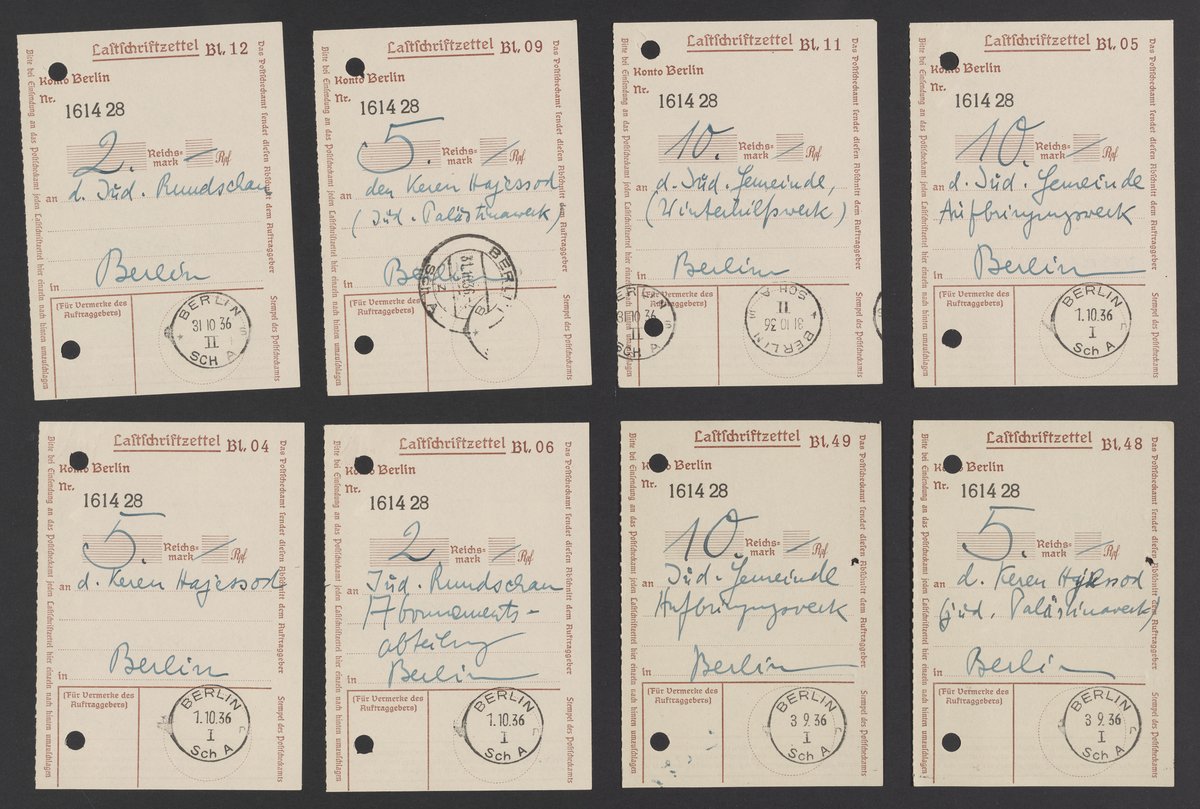 Lastschriftzettel Bl. 12
Konto Berlin
Nr. 1614 28
2. Reichsmark — Rpf.
an d. Jüd. Rundschau
in Berlin
(Für Vermerke des
Auftraggebers)
BERLIN
31 10 36
II
Sch A
Bitte bei Einsendung an das Postscheckamt jeden Lastschriftzettel hier einzeln nach hinten umzuschlagen
Das Postscheckamt sendet diesen Abschnitt dem Auftraggeber
Stempel des Postscheckamts
Lastschriftzettel Bl. 09
Konto Berlin
Nr. 1614 28
5. Reichsmark — Rpf.
an den Keren Hajessod
(Jüd. Palästinawerk)
in Berlin
(Für Vermerke des
Auftraggebers)
BERLIN
Bitte bei Einsendung an das Postscheckamt jeden Lastschriftzettel hier einzeln nach hinten umzuschlagen
Das Postscheckamt sendet diesen Abschnitt dem Auftraggeber
Stempel des Postscheckamts
Lastschriftzettel Bl. 11
Konto Berlin
Nr. 1614 28
10. Reichsmark — Rpf.
an d. Jüd. Gemeinde,
(Winterhilfswerk)
in Berlin
31 10 36
II
SCH A
BERLIN
31 10 36
II
SCH A
Bitte bei Einsendung an das Postscheckamt jeden Lastschriftzettel hier einzeln nach hinten umzuschlagen
Das Postscheckamt sendet diesen Abschnitt dem Auftraggeber
Stempel des Postscheckamts
Lastschriftzettel Bl. 05
Konto Berlin
Nr. 1614 28
10. Reichsmark — Rpf.
an d. Jüd. Gemeinde
Aufbringungswerk
in Berlin
(Für Vermerke des
Auftraggebers)
BERLIN
1.10.36
I
Sch A
Bitte bei Einsendung an das Postscheckamt jeden Lastschriftzettel hier einzeln nach hinten umzuschlagen
Das Postscheckamt sendet diesen Abschnitt dem Auftraggeber
Stempel des Postscheckamts
Lastschriftzettel Bl. 04
Konto Berlin
Nr. 1614 28
5. Reichsmark — Rpf.
an d. Keren Hajessod
in Berlin
(Für Vermerke des
Auftraggebers)
BERLIN
1.10.36
I
Sch A
Bitte bei Einsendung an das Postscheckamt jeden Lastschriftzettel hier einzeln nach hinten umzuschlagen
Das Postscheckamt sendet diesen Abschnitt dem Auftraggeber
Stempel des Postscheckamts
Lastschriftzettel Bl. 06
Konto Berlin
Nr. 1614 28
2 Reichsmark — Rpf.
an Jüd. Rundschau
Abonnements-
abteilung
in Berlin
(Für Vermerke des
Auftraggebers)
BERLIN
1.10.36
I
Sch A
Bitte bei Einsendung an das Postscheckamt jeden Lastschriftzettel hier einzeln nach hinten umzuschlagen
Das Postscheckamt sendet diesen Abschnitt dem Auftraggeber
Stempel des Postscheckamts
Lastschriftzettel Bl. 49
Konto Berlin
Nr. 1614 28
10 Reichsmark — Rpf.
an Jüd. Gemeinde
Aufbringungswerk
in Berlin
(Für Vermerke des
Auftraggebers)
BERLIN
3 9.36
I
Sch A
Bitte bei Einsendung an das Postscheckamt jeden Lastschriftzettel hier einzeln nach hinten umzuschlagen
Das Postscheckamt sendet diesen Abschnitt dem Auftraggeber
Stempel des Postscheckamts
Lastschriftzettel Bl. 48
Konto Berlin
Nr. 1614 28
5. Reichsmark — Rpf.
an d. Keren Hajessod
(jüd. Palästinawerk)
in Berlin
(Für Vermerke des
Auftraggebers)
BERLIN
3 9.36
I
Sch A
Bitte bei Einsendung an das Postscheckamt jeden Lastschriftzettel hier einzeln nach hinten umzuschlagen
Das Postscheckamt sendet diesen Abschnitt dem Auftraggeber
Stempel des Postscheckamts